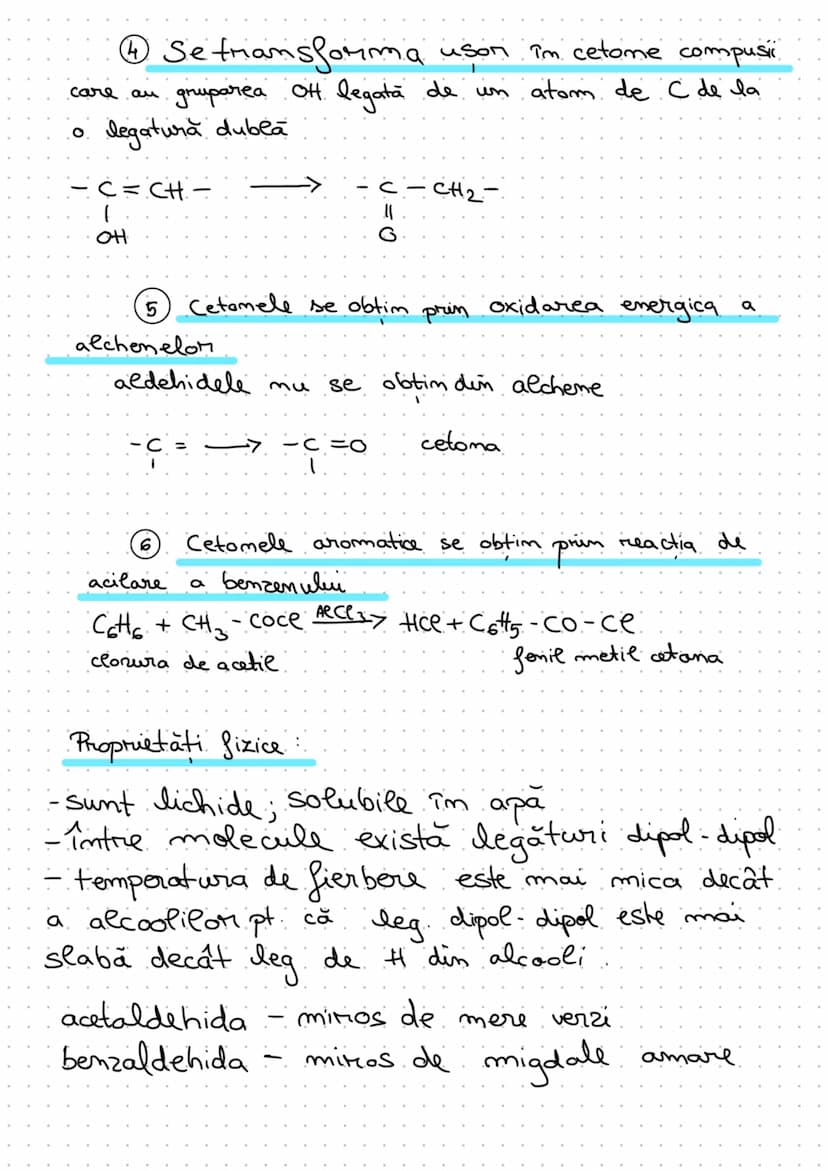 ④ Se transforma usor în cetone compusii
care au gruparea OH legată de un atom de C de la
o legatură dublă
- C = CH - ⟶ - C - CH2 -
| ||
OH O
⑤ Cetonele se obțin prin oxidarea energica a
alchenelor
aldehidele nu se obțin din alchene
- C = ⟶ - C = O cetona
| |
⑥ Cetonele aromatice se obțin prin reactia de
acilare a benzenului
C6H6 + CH3 - COCl AlCl3⟶ HCl + C6H5 - CO - Cl
clorura de acetil fenil metil cetona
Proprietăți fizice :
- sunt lichide; solubile în apă
- între molecule există legături dipol - dipol
- temperatura de fierbere este mai mica decât
a alcoolilor pt. că leg. dipol - dipol este mai
slabă decât leg de H din alcooli .
acetaldehida - miros de mere verzi
benzaldehida - miros de migdale amare